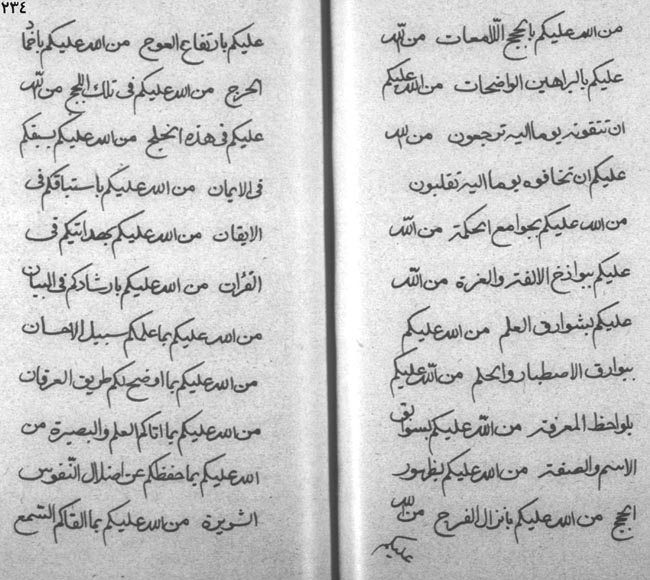 ٢٣٤
من الله عليكم بالحجج اللامعات من الله
عليكم بالبراهين الواضحات من الله عليكم
ان تتقونه يوما اليه ترجعون من الله
عليكم ان تخافوه يوما اليه تقلبون
من الله عليكم بجوامع الحكمة من الله
عليكم ببواذخ الالفة والعزة من الله
عليكم بشوارق العلم من الله عليكم
ببوارق الاصطبار والحلم من الله عليكم
بلواحظ المعرفة من الله عليكم بسوابق
الاسم والصفة من الله عليكم بظهور
الحجج من الله عليكم بانزال الفرج من الله
عليكم
عليكم بارتفاع العوج من الله عليكم باخماد
الحرج من الله عليكم فى تلك اللجج من الله
عليكم فى هذه الخلج من الله عليكم بسبقكم
فى الايمان من الله عليكم باستباقكم فى
الايقان من الله عليكم بهدايتكم فى
القران من الله عليكم بارشادكم فى البيان
من الله عليكم بما علمكم سبيل الاحسان
من الله عليكم بما اوضح لكم طريق العرفان
من الله عليكم بما اتاكم العلم والبصيرة من
الله عليكم بما حفظكم عن اضلال النفوس
الشريرة من الله عليكم بما القاكم السمع